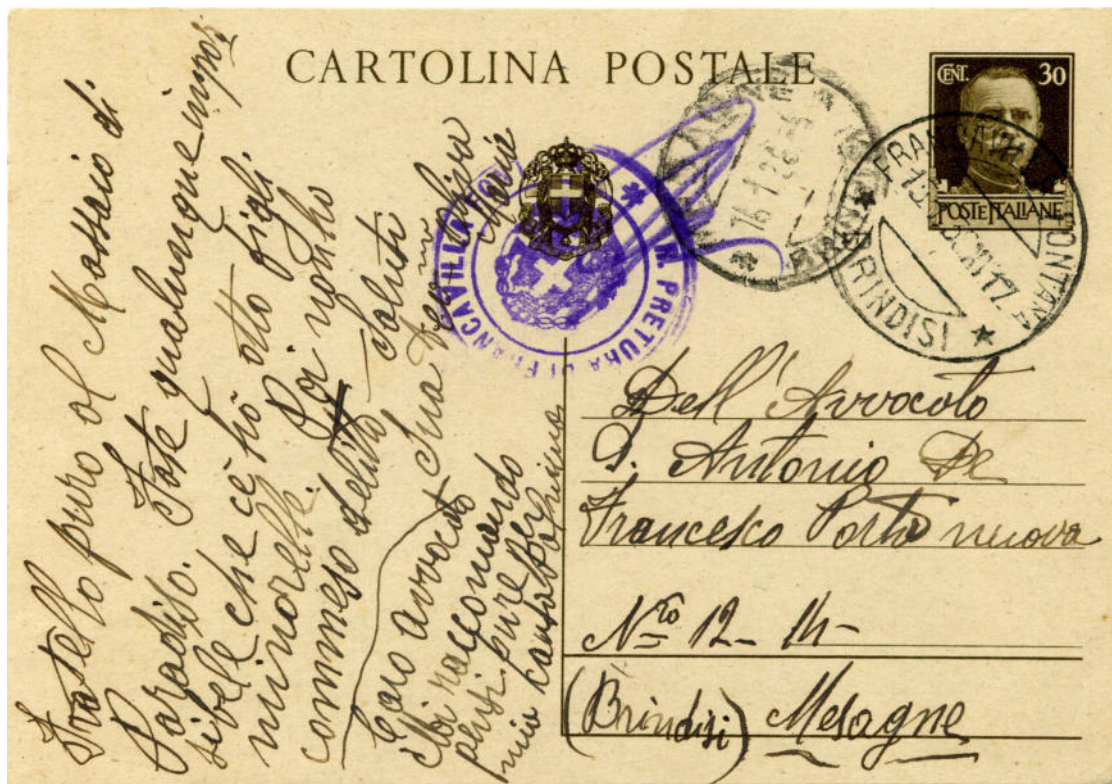 CARTOLINA POSTALE
CENT. 30
POSTE ITALIANE
FRANCAVILLA FONTANA
BRINDISI
R. PRETURA DI FRANCAVILLA
Dell'Avvocato
D. Antonio De
Francesco Porta nuova
Nro 12 - M -
(Brindisi) Mesagne
Fratello puro al Massaio di
Paradiso. Fate qualunque impos
sibele che ce hò otto figli
minorelle. Poi nonho
commeso delitto Saluti
Caro avvocato Suo
Moi raccomando
pensi pure per
mia